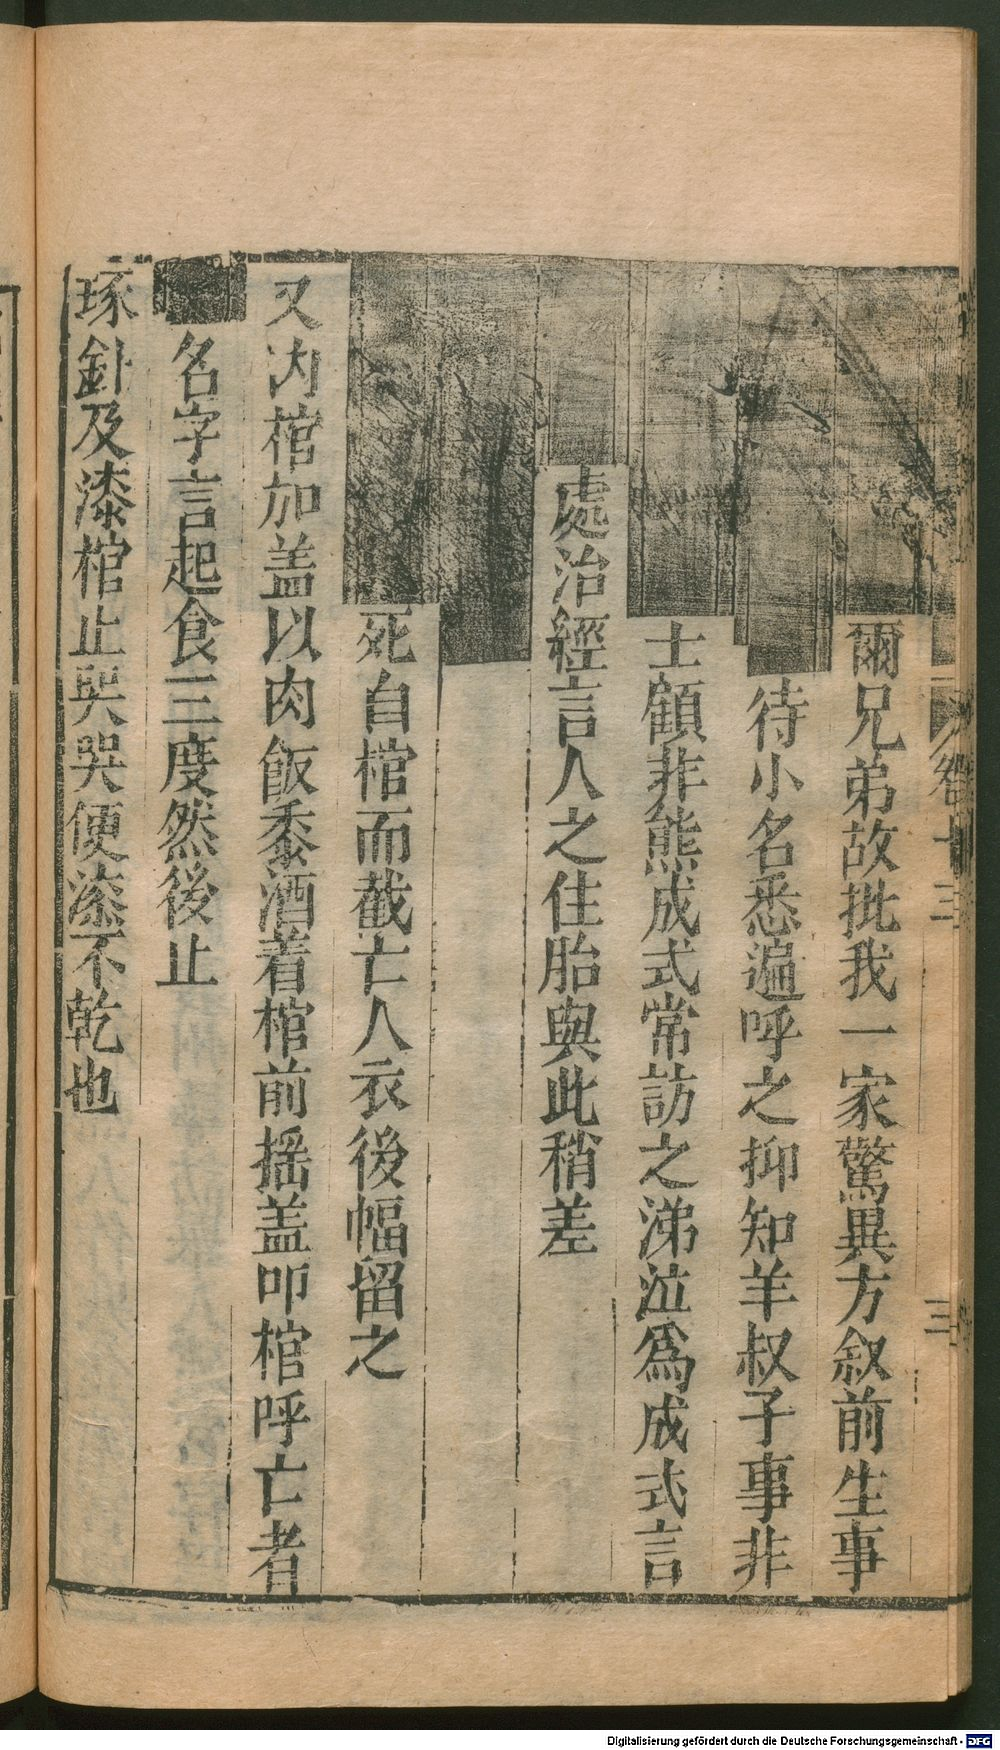 爾兄弟故批我一家驚異方叙前生事
待小名悉遍呼之抑知羊叔子事非
士顧非熊成式常訪之涕泣爲成式言
處治經言人之住胎與此稍差
死自棺而截亡人衣後幅留之
又内棺加盖以肉飯黍酒着棺前揺盖叩棺呼亡者
名字言起食三度然後止
琢針及漆棺止哭哭便漆不乾也
卷十三
三
Digitalisierung gefördert durch die Deutsche Forschungsgemeinschaft - DFG